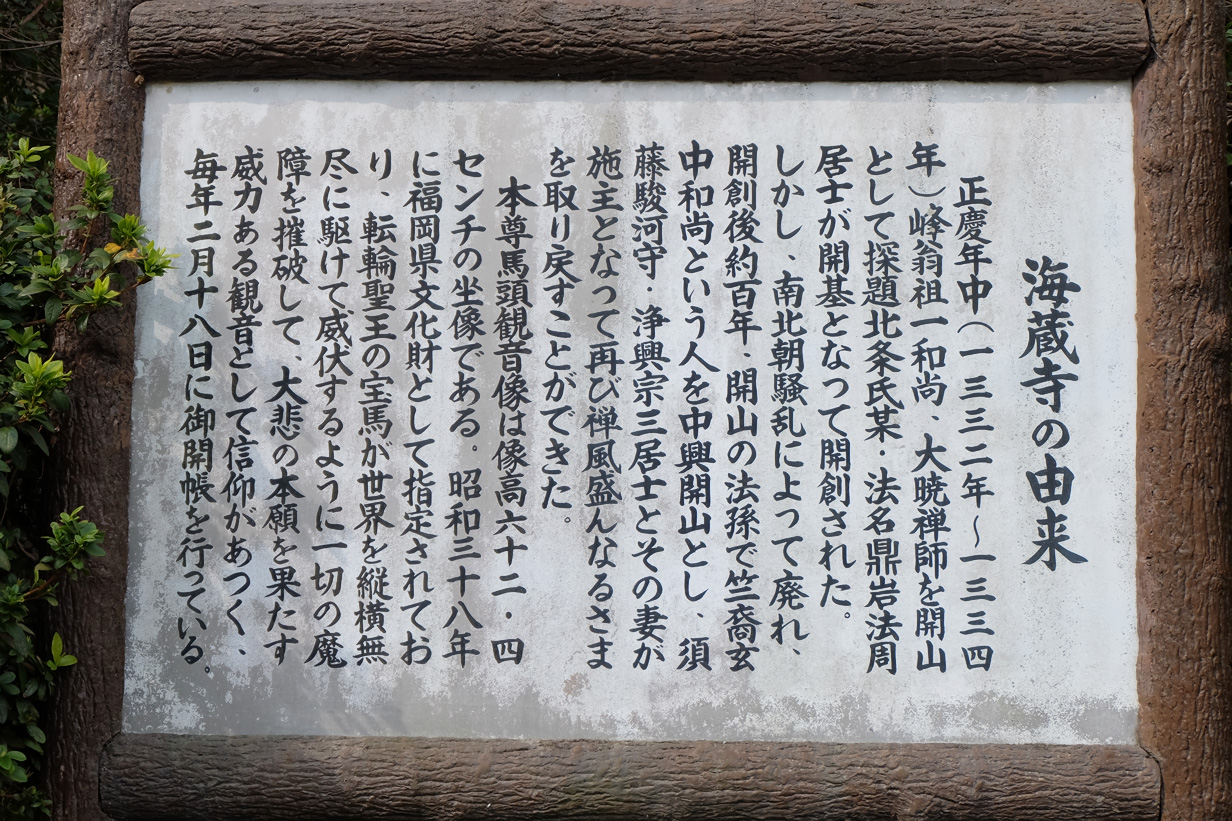 海蔵寺の由来
正慶年中(一三三二年～一三三四
年)峰翁祖一和尚、大暁禅師を開山
として探題北条氏某・法名鼎岩法周
居士が開基となって開創された。
しかし、南北朝騒乱によって廃れ、
開創後約百年、開山の法孫で竺裔玄
中和尚という人を中興開山とし、須
藤駿河守・浄興宗三居士とその妻が
施主となって再び禅風盛んなるさま
を取り戻すことができた。
本尊馬頭観音像は像高六十二・四
センチの坐像である。昭和三十八年
に福岡県文化財として指定されてお
り、転輪聖王の宝馬が世界を縦横無
尽に駆けて威伏するように一切の魔
障を摧破して、大悲の本願を果たす
威力ある観音として信仰があつく、
毎年二月十八日に御開帳を行っている。